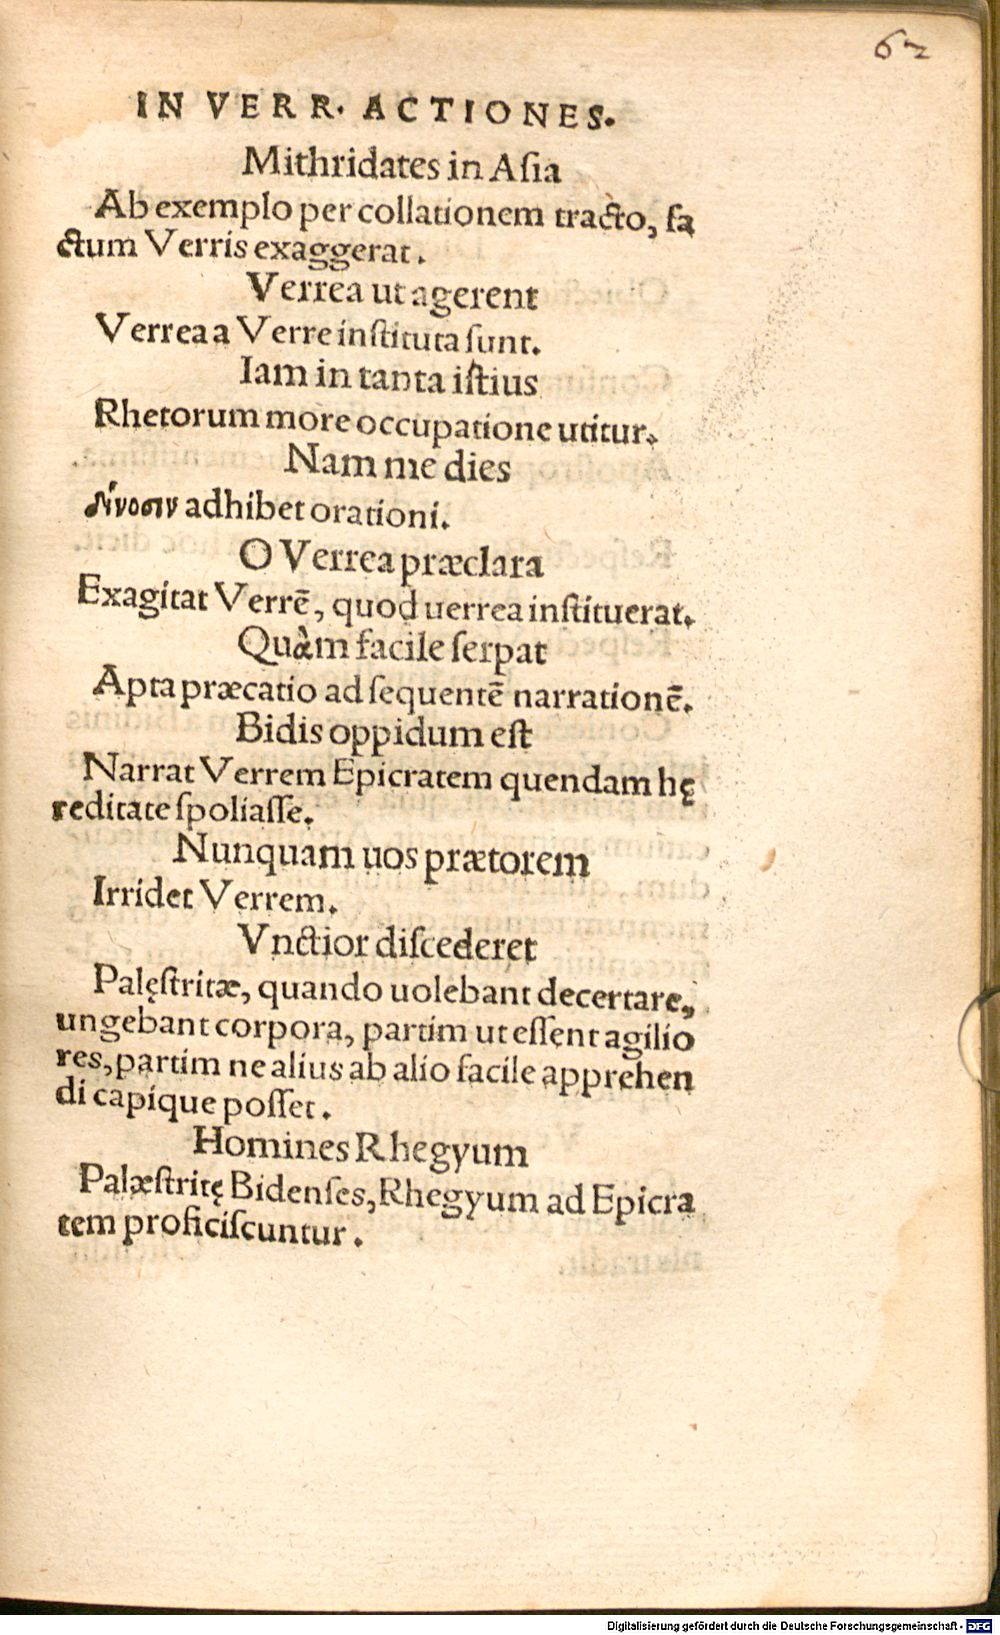 62
IN VERR. ACTIONES.
Mithridates in Aſia
Ab exemplo per collationem tracto, fa
ctum Verris exaggerat.
Verrea ut agerent
Verrea a Verre inſtituta ſunt.
Iam in tanta iſtius
Rhetorum more occupatione utitur.
Nam me dies
adhibet orationi.
O Verrea præclara
Exagitat Verrē, quod uerrea inſtituerat.
Quàm facile ſerpat
Apta præcatio ad ſequentē narrationē.
Bidis oppidum eſt
Narrat Verrem Epicratem quendam hę
reditate ſpoliaſſe.
Nunquam uos prætorem
Irridet Verrem.
Vnctior diſcederet
Palęſtritæ, quando uolebant decertare,
ungebant corpora, partim ut eſſent agilio
res, partim ne alius ab alio facile apprehen
di capique poſſet.
Homines Rhegyum
Palæſtritę Bidenſes, Rhegyum ad Epicra
tem proficiſcuntur.
Digitalisierung gefördert durch die Deutsche Forschungsgemeinschaft - DFG